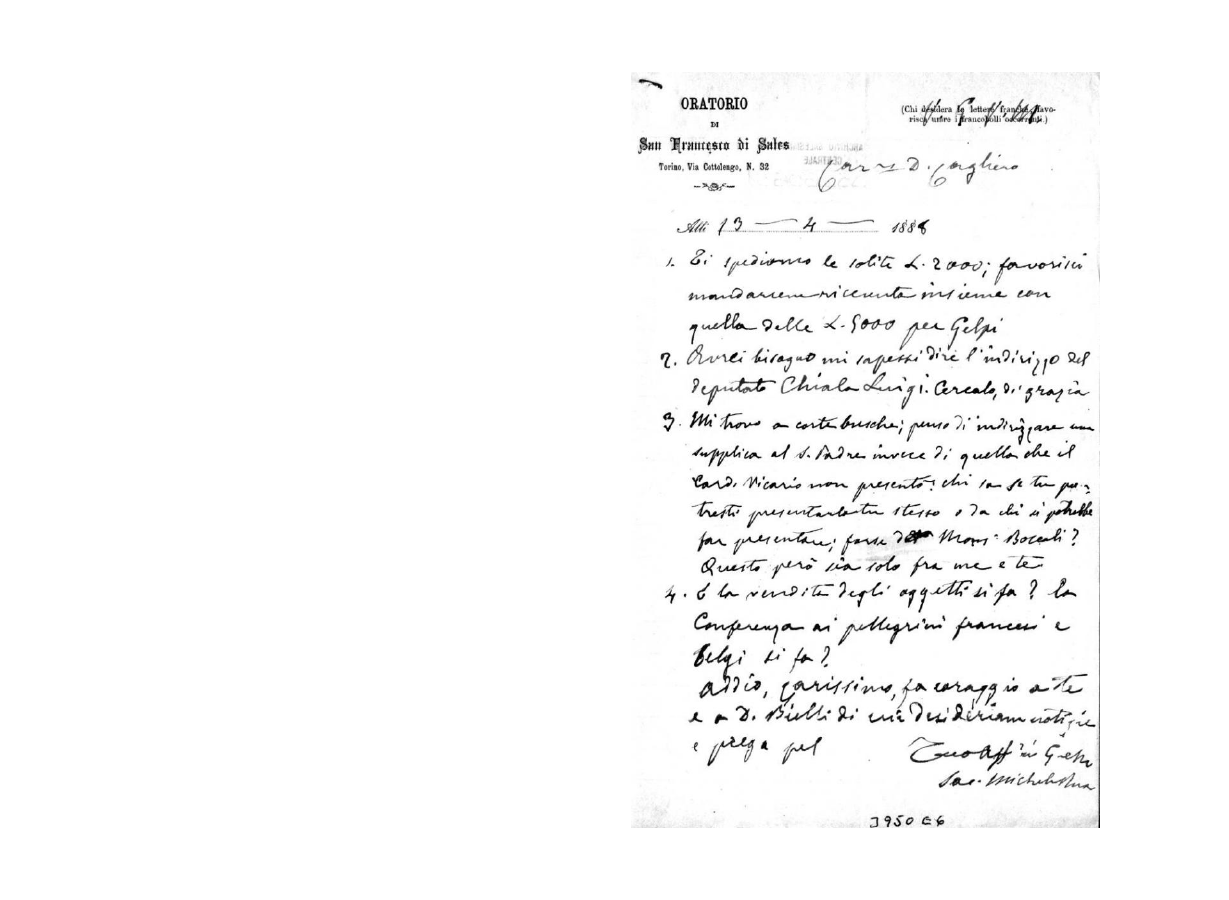 ORATORIO
DI
San Francesco di Sales
Torino, Via Cottolengo, N. 32
(Chi desidera le lettere franche, favo-
risca unire i francobolli occorrenti.)
ARCHIVIO
CENTRALE
Car D. Cagliero
Alli 13 — 4 — 1888
1. Ti spediamo le solite L. 2000; favorisci
mandarcene ricevuta insieme con
quella delle L. 5000 per Gelpi
2. Avrei bisogno mi sapessi dire l'indirizzo del
deputato Chiala Luigi. Cercalo, di grazia
3. Mi trovo a corte busche; penso di indirizzare una
supplica al S. Padre invece di quella che il
Card. Vicario non presentò: chi sa se tu po-
tresti presentarla tu stesso o da chi si potrebbe
far presentare; forse da Mons. Boccali?
Questo però sia solo fra me e te
4. E la vendita degli oggetti si fa? La
Conferenza ai pellegrini francesi e
belgi si fa?
Addio, carissimo, fa coraggio a te
e a D. Bielli di cui desideriam notizie
e prega pel
Tuo Aff in G.
Sac. Michele Rua
3950 E6